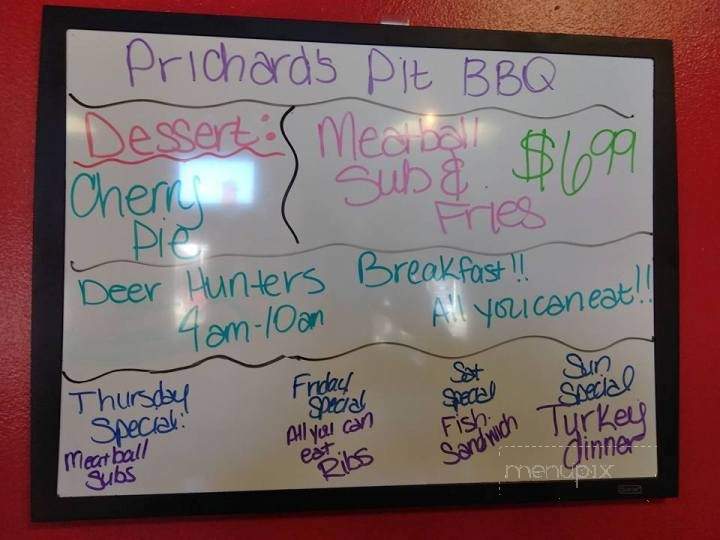 Prichard's Pit BBQ
Dessert:
Cherry
Pie
Meatball
Sub &
Fries
$6.99
Deer Hunters Breakfast!!
4am-10am All you can eat!!
Thursday
Special:
Meatball
Subs
Friday
Special
All you can
eat
Ribs
Sat
Special
Fish
Sandwich
Sun
Special
Turkey
dinner
menupix